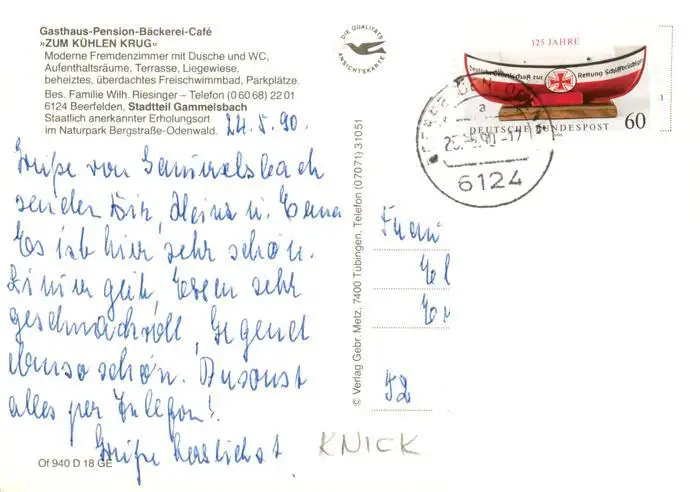 Gasthaus-Pension-Bäckerei-Café
»ZUM KÜHLEN KRUG«
Moderne Fremdenzimmer mit Dusche und WC,
Aufenthaltsräume, Terrasse, Liegewiese,
beheiztes, überdachtes Freischwimmbad, Parkplätze.
Bes. Familie Wilh. Riesinger – Telefon (0 60 68) 22 01
6124 Beerfelden, Stadtteil Gammelsbach
Staatlich anerkannter Erholungsort
im Naturpark Bergstraße-Odenwald.
24.5.90.
Grüße von Gammelsbach
senden Dir, Heinz u.
Es ist hier sehr schön.
Zimmer gut, Essen sehr
geschmackvoll, Gegend
ebenso schön. Ansonst
alles per Telefon!
Grüße herzlichst
KNICK
Of 940 D 18 GE
DIE QUALITÄTS
ANSICHTSKARTE
© Verlag Gebr. Metz, 7400 Tübingen, Telefon (07071) 31051
125 JAHRE
Deutsche Gesellschaft zur Rettung Schiffbrüchiger
DEUTSCHE BUNDESPOST 60
a
90-17
6124
52